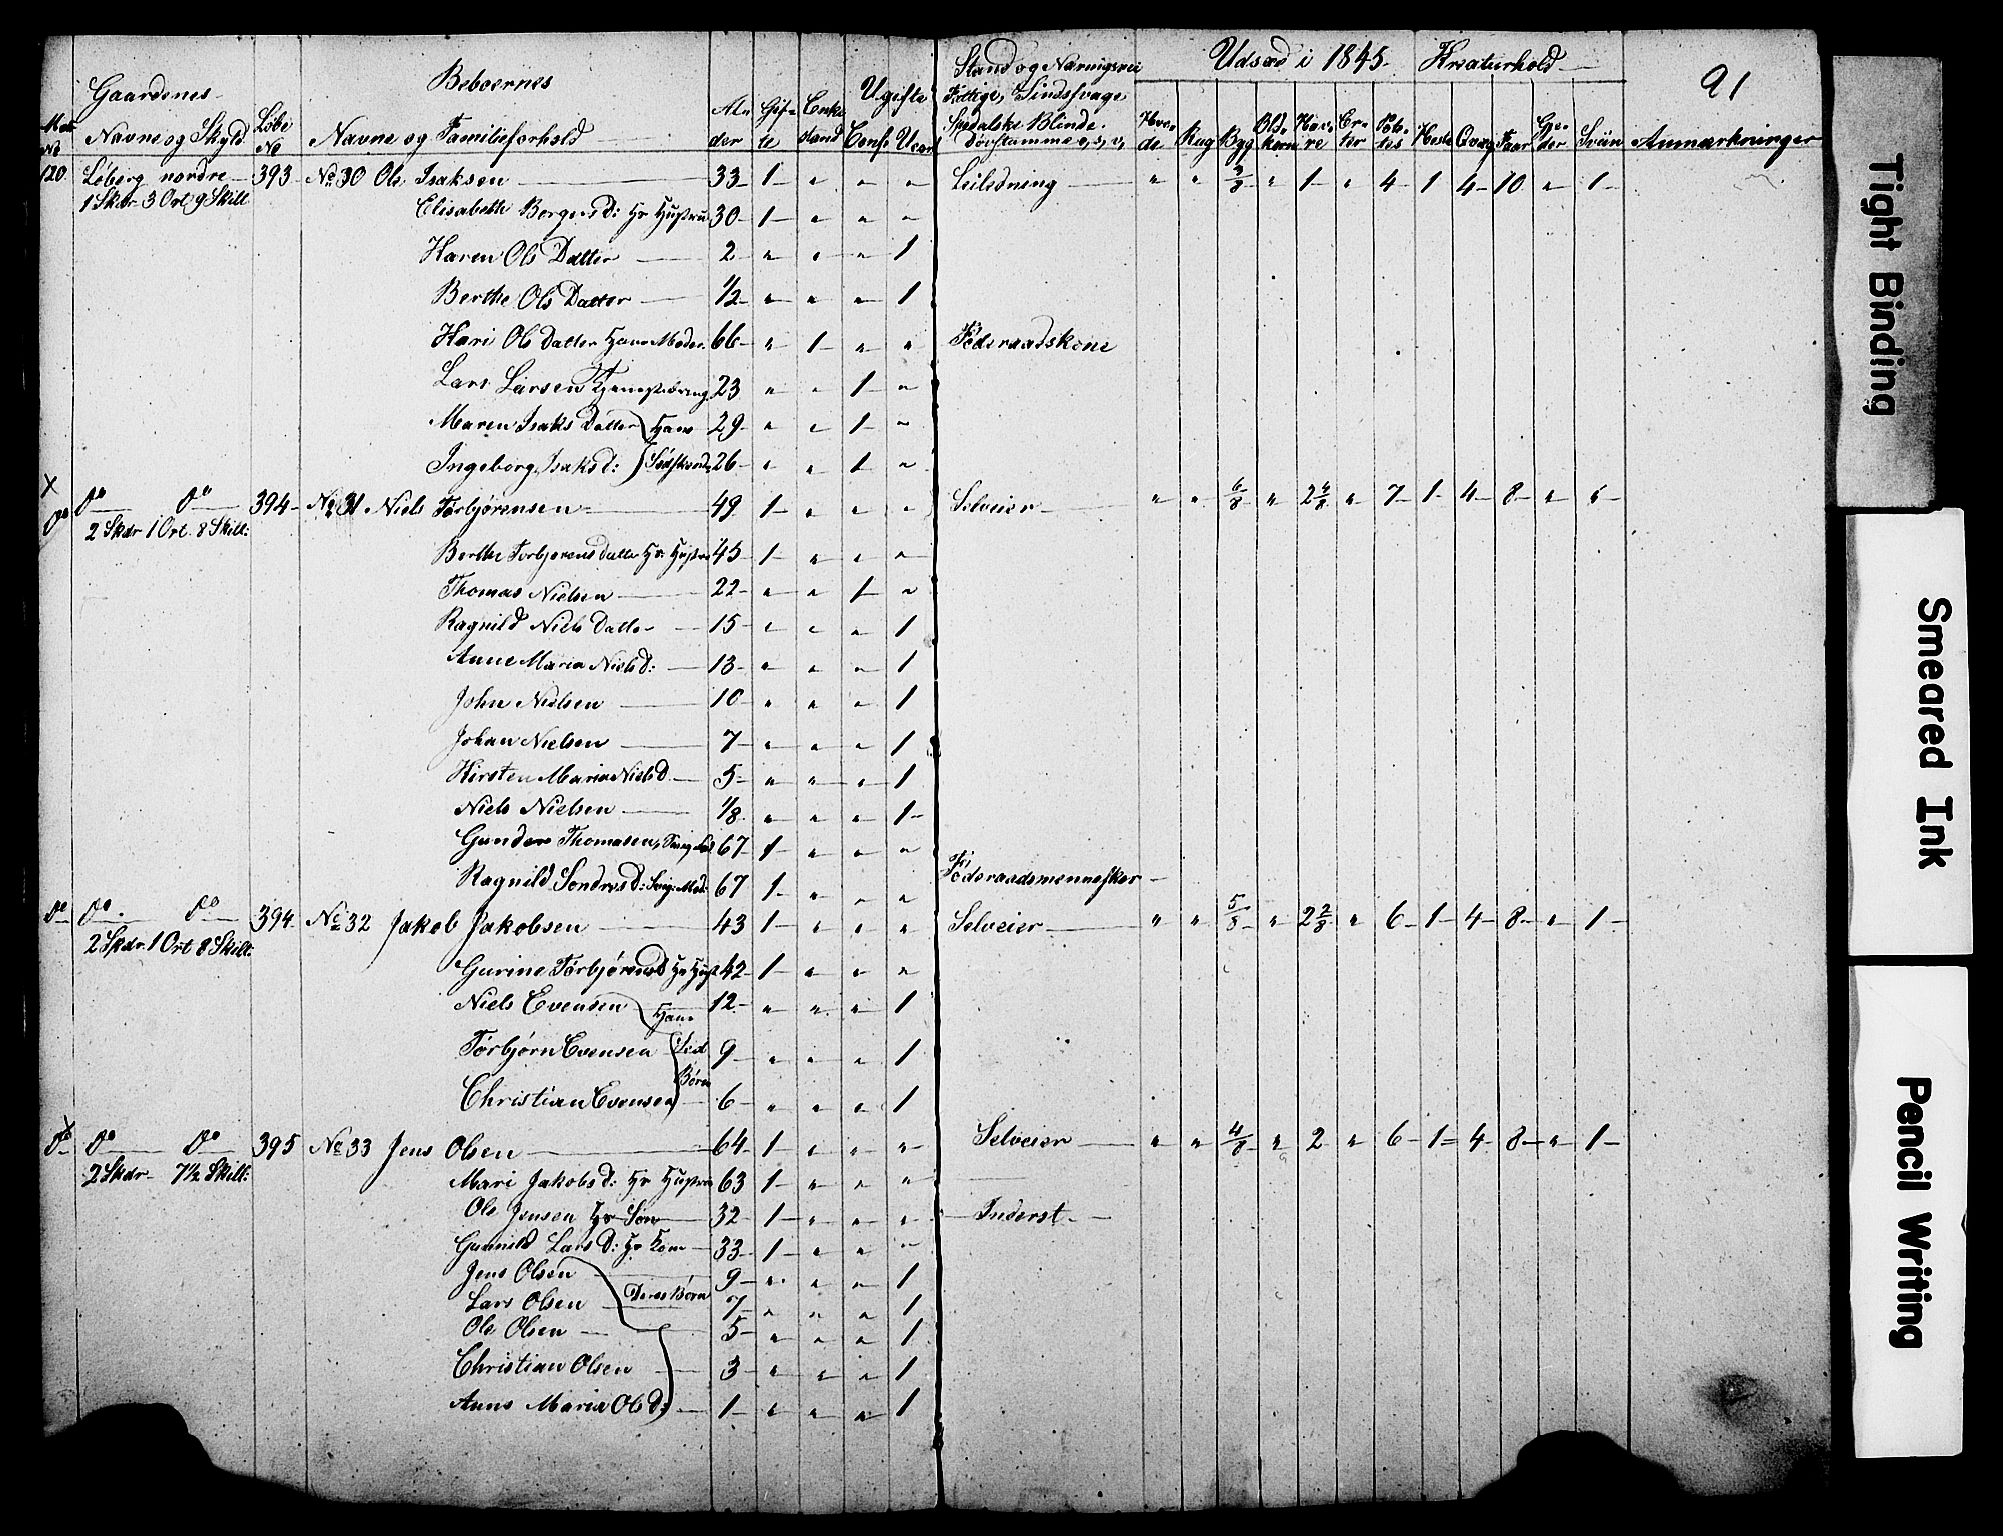 Gaardenes Beboernes Ugifte Stand og Næringsvei Udsæd i 1845. Kreaturhold 91
Mat. No Navne og Skyld Løbe No Navne og Familieforhold Al-der Gif-te Enke-stand Conf. Ucon Fattige, Sindssvage, Spedalske Blinde. Døvstumme Hve-de Rug Byg Bl.korn Hav-re Er-ter Pote-tes Heste Qvæg Faar Ge-der Sviin Anmærkninger
120 Løberg nordre 393 No 30 Ole Isaksen 33 1 " " " Leilending " " 3/8 " 1 " 4 1 4 10 " 1
1 Skdr 3 Ort 9 Skill
Elisabeth Borgersd: Hs Hustru 30 1 " " "
Karen Ols Datter 2 " " " 1
Berthe Ols Datter 1/2 " " " 1
Kari Ols Datter Hans Moder 66 " 1 " " Føderaadskone
Lars Larsen 23 " " 1 "
Maren Isaks Datter Hans 29 " " 1 "
Ingeborg Isaksd: Sødskende 26 " " 1 "
x
do do do 394 No 31 Niels Torbjørensen 49 1 " " " Selveier " " 6/8 " 2 4/8 " 7 1 4 8 "
2 Skdr 1 Ort 8 Skill:
Berthe Torbjørens Datter Hs Hustru 45 1 " " "
Thomas Nielsen 22 " " 1 "
Ragnild Niels Datter 15 " " " 1
Anne Maria Nielsd: 13 " " " 1
John Nielsen 10 " " " 1
Johan Nielsen 7 " " " 1
Kirsten Maria Nielsd 5 " " " 1
Niels Nielsen 1/8 " " " 1
Gunder Thomasen, 67 1 " " "
Ragnild Sondresd: Svig: Mod: 67 1 " " " Føderaadsmennesker
do do do 394 No 32 Jakob Jakobsen 43 1 " " " Selveier " " 5/8 " 2 2/8 " 6 1 4 8 " 1
2 Skdr. 1 Ort 8 Skill:
Gurine Torbjørensd Hs Hust 42 1 " " "
Niels Evensen Hans 12 " " " 1
Torbjørn Evensen Sted 9 " " " 1
Børn
Christian Evensen 6 " " " 1
x
do do do 395 No 33 Jens Olsen 64 1 " " " Selveier " " 4/8 " 2 " 6 1 4 8 " 1
2 Skdr 7½ Skill:
Mari Jakobsd: Hs Hustru 63 1 " " "
Ole Jensen Hs Søn 32 1 " " " Inderst
Gunnild Larsd: Hs Kone 33 1 " " "
Jens Olsen 9 " " " 1
Lars Olsen Deres Børn 7 " " " 1
Ole Olsen 5 " " " 1
Christian Olsen 3 " " " 1
Anne Maria Olsd: 1 " " " 1
Tight Binding
Smeared Ink
Pencil Writing